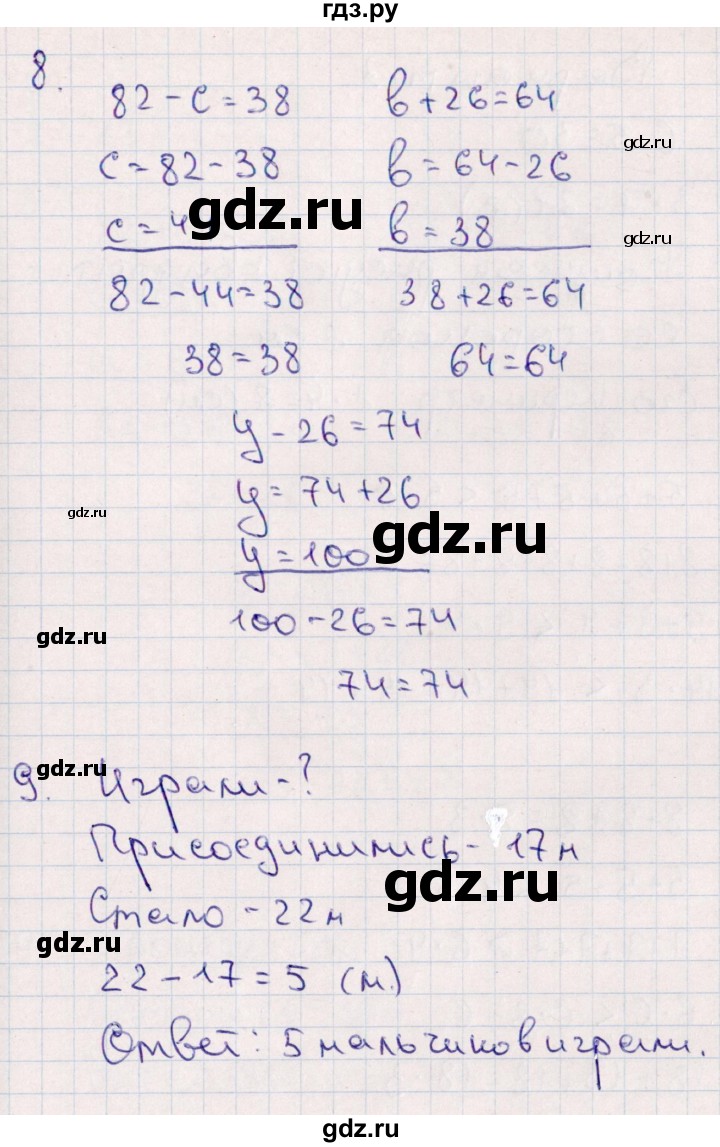 гдз.ру
8.
82 - c = 38
c = 82 - 38
c = 4
82 - 44 = 38
38 = 38
b + 26 = 64
b = 64 - 26
b = 38
38 + 26 = 64
64 = 64
gdz.ru
gdz.ru
gdz.ru
y - 26 = 74
y = 74 + 26
y = 100
100 - 26 = 74
74 = 74
gdz.ru
gdz.ru
gdz.ru
9. Играли - ?
Присоединились - 17 м
Стало - 22 м
22 - 17 = 5 (м.)
Ответ: 5 мальчиков играли.
gdz.ru
gdz.ru
gdz.ru